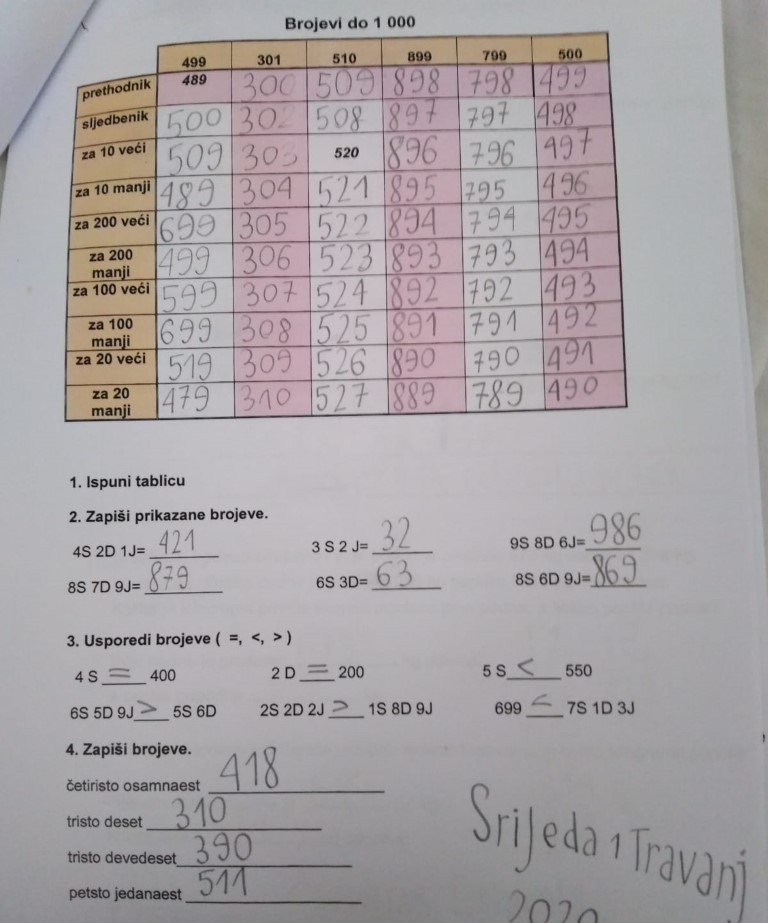 Brojevi do 1 000
499 301 510 899 799 500
prethodnik 489 300 509 898 798 499
sljedbenik 500 302 508 897 797 498
za 10 veći 509 303 520 896 796 497
za 10 manji 489 304 521 895 795 496
za 200 veći 699 305 522 894 794 495
za 200 manji 499 306 523 893 793 494
za 100 veći 599 307 524 892 792 493
za 100 manji 699 308 525 891 791 492
za 20 veći 519 309 526 890 790 491
za 20 manji 479 310 527 889 789 490
1. Ispuni tablicu
2. Zapiši prikazane brojeve.
4S 2D 1J= 421 3 S 2 J= 32 9S 8D 6J= 986
8S 7D 9J= 879 6S 3D= 63 8S 6D 9J= 869
3. Usporedi brojeve ( =, <, > )
4 S = 400 2 D = 200 5 S < 550
6S 5D 9J > 5S 6D 2S 2D 2J > 1S 8D 9J 699 < 7S 1D 3J
4. Zapiši brojeve.
četiristo osamnaest 418
tristo deset 310
tristo devedeset 390
petsto jedanaest 511
Srijeda 1 Travanj
2020